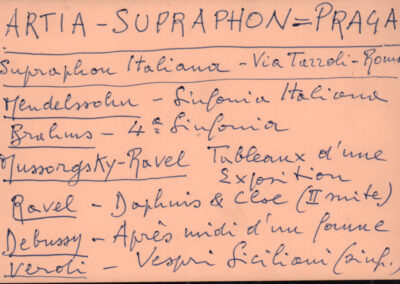 ARTIA - SUPRAPHON = PRAGA
Supraphon Italiana - Via Tazzoli - Roma
Mendelssohn - Sinfonia Italiana
Brahms - 4ª Sinfonia
Mussorgsky-Ravel Tableaux d'une
Exposition
Ravel - Daphnis & Cloe (II suite)
Debussy - Après midi d'un faune
Verdi - Vespri Siciliani (sinf.)